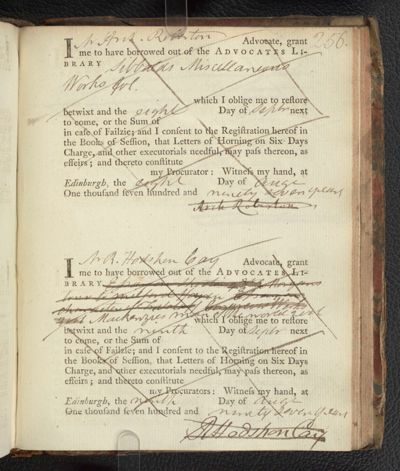 256.
I Mr Arch. Robertson Advocate, grant
me to have borrowed out of the ADVOCATES LI-
BRARY Sibbalds Miscellaneous
Works
which I oblige me to restore
betwixt and the eight Day of Sepbr next
to come, or the Sum of
in case of Failzie; and I consent to the Registration hereof in
the Books of Session, that Letters of Horning on Six Days
Charge, and other executorials needful, may pass thereon, as
effeirs; and thereto constitute
my Procurator: Witness my hand, at
Edinburgh, the eight Day of Augt
One thousand seven hundred and ninety seven years
Arch Robertson
I Mr R. Hodshon Cay Advocate, grant
me to have borrowed out of the ADVOCATES LI-
BRARY
Mackenzies man of the world
which I oblige me to restore
betwixt and the ninth Day of Sepbr next
to come, or the Sum of
in case of Failzie; and I consent to the Registration hereof in
the Books of Session, that Letters of Horning on Six Days
Charge, and other executorials needful, may pass thereon, as
effeirs; and thereto constitute
my Procurators: Witness my hand, at
Edinburgh, the ninth Day of Augt
One thousand seven hundred and ninety seven years
R Hodshon Cay